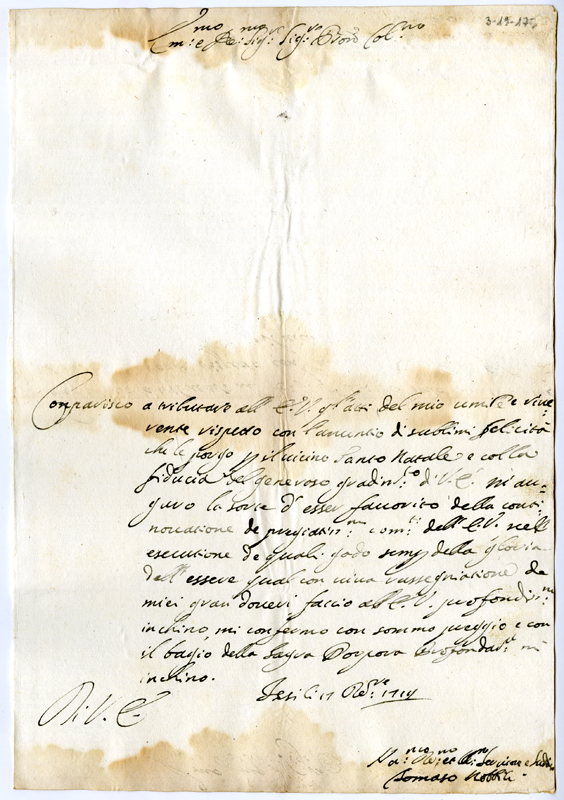 3-19-175
Em:mo e Re:mo Sig:r Sig:r P̃rone Col:mo
Comparisco a tributare all' E:V: gl'atti del mio umile e rive=
rente rispetto con l'anuntio di sublimi felicità
che le porgo p il vicino Santo Natale e colla
fiducia del generoso gradim:to di V: E: mi au=
guro la sorte d'esser favorito della conti=
novatione de pregiatis:mi com:ti dell' E:V: nell'
esecutione de quali godo semp della gloria
dell' essere qual con viva rassegniatione de
miei gran doveri faccio all' E:V: profondis:mo
inchino, mi confermo con sommo preggio e con
il bagio della Sagra Porpora profondam:te mi
inchino.
Jesi li 17 Xbre 1714
Di V: E:
Hu:mo Dev:mo et Obl:mo Servitore
Tomaso Nobili